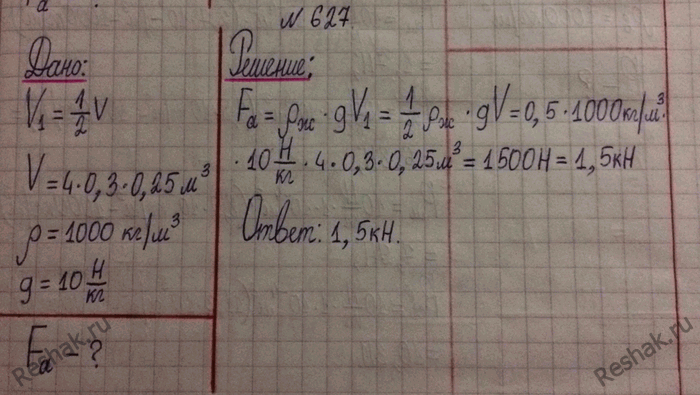 № 627.
Дано:
V₁ = 1/2 V
V = 4·0,3·0,25 м³
ρ = 1000 кг/м³
g = 10 Н/кг
Fа - ?
Решение:
Fа = ρж · gV₁ = 1/2 ρж · gV = 0,5 · 1000 кг/м³ ·
· 10 Н/кг · 4 · 0,3 · 0,25 м³ = 1500 Н = 1,5 кН
Ответ: 1,5 кН.
Reshak.ru
Reshak.ru